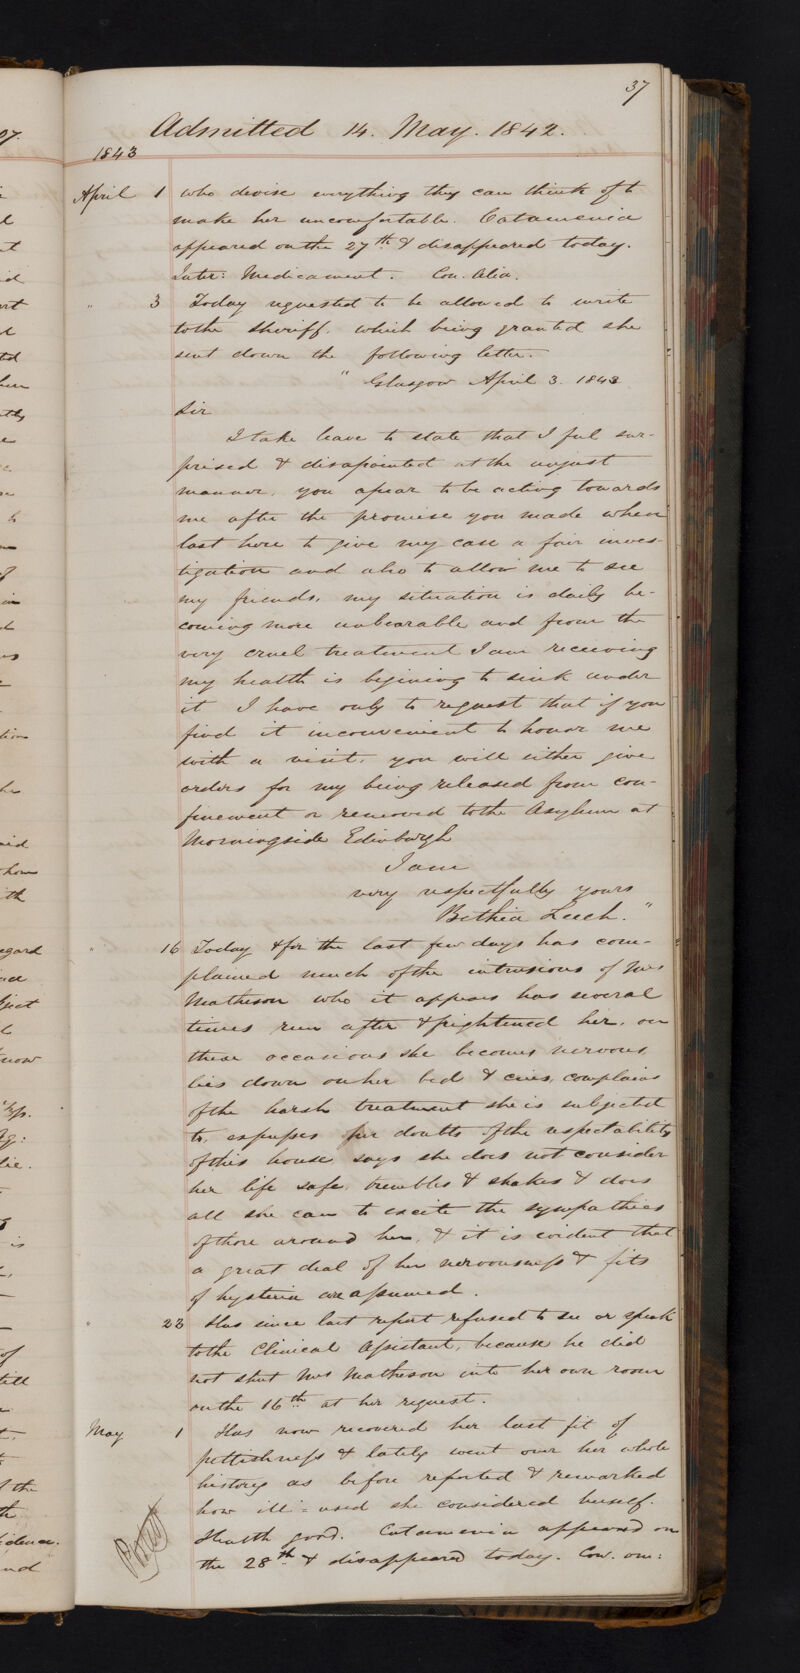 37
Admitted 14. May. 1842.
1843
April 1 who devise everything they can think of to
make her uncomfortable. Catamenia
appeared on the 27th & disappeared today.
Inter: Medicament. Con. alia.
" 3 Today requested to be allowed to write
to the Sheriff. which being granted she
sent down the following letter.
" Glasgow April 3. 1843
Sir
I take leave to state that I feel sur-
prised & disapointed at the unjust
manner. you apear to be acting towards
me after the promise you made when
last here to give my case a fair inves-
tigation and also to allow me to see
my friends, my situation is daily be-
coming more unbearable and from the
very cruel treatment I am receiving
my health is begining to sink under
it I have only to request that if you
find it inconvenient to honor me
with a visit. you will either give
orders for my being released from con-
finement or removed to the Asylum at
Morningside Edinburgh
I am
very respectfully yours
Bethia Leech. "
" 16 Today & for the last few days has com-
plained much of the intrusions of Mrs
Matheson who it appears has several
times run after & frightened her. on
these occasions she becomes nervous
lies down on her bed & cries, complains
of the harsh treatment she is subjected
to, expresses her doubts of the respectability
of this house says she does not consider
her life safe. trembles & shakes & does
all she can to excite the sympathies
of those around her, & it is evident that
a great deal of her nervousness & fits
of hysteria are assumed.
" 23 Has since last report refused to see or speak
to the Clinical Assistant, because he did
not shut Mrs Matheson into her own room
on the 16th at her request.
May 1 Has now recovered her last fit of
pettishness & lately went over her whole
history as before reported & remarked
how ill-used she considered herself.
Health good. Catamenia appeared on
the 28th & disappeared today. Con. om: